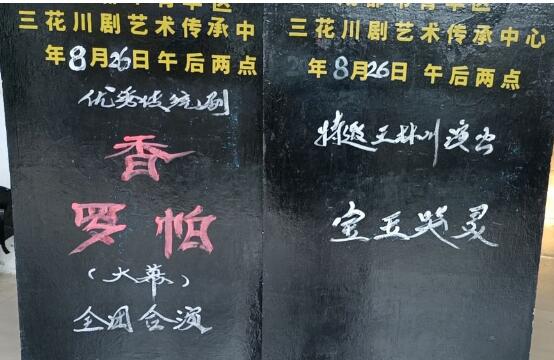 三花川剧艺术传承中
年8月26日午后两点
优秀传统剧
香
罗帕
（大幕）
全团合演
三花川剧艺术传承中心
年8月26日 午后两点
特邀王林川演出
宝玉哭灵